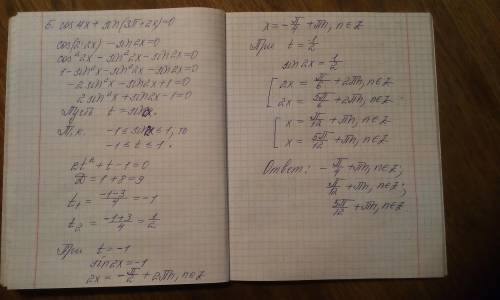 6. cos4x + sin(3π+2x)=0
cos(2·2x) - sin2x=0
cos²2x - sin²2x - sin2x=0
1 - sin²x - sin²2x - sin2x=0
-2sin²x - sin2x + 1=0
2sin²x + sin2x - 1=0
Пусть t = sin2x.
Т.к. -1 ≤ sin2x ≤ 1, то
-1 ≤ t ≤ 1.
2t² + t - 1 = 0
D = 1 + 8 = 9
t₁ = (-1-3)/4 = -1
t₂ = (-1+3)/4 = 1/2
При t = -1
sin2x = -1
2x = -π/2 + 2πn, n∈Z
x = -π/4 + πn, n∈Z
При t = 1/2
sin2x = 1/2
[ 2x = π/6 + 2πn, n∈Z
2x = 5π/6 + 2πn, n∈Z
[ x = π/12 + πn, n∈Z
x = 5π/12 + πn, n∈Z
Ответ: -π/4 + πn, n∈Z;
π/12 + πn, n∈Z;
5π/12 + πn, n∈Z